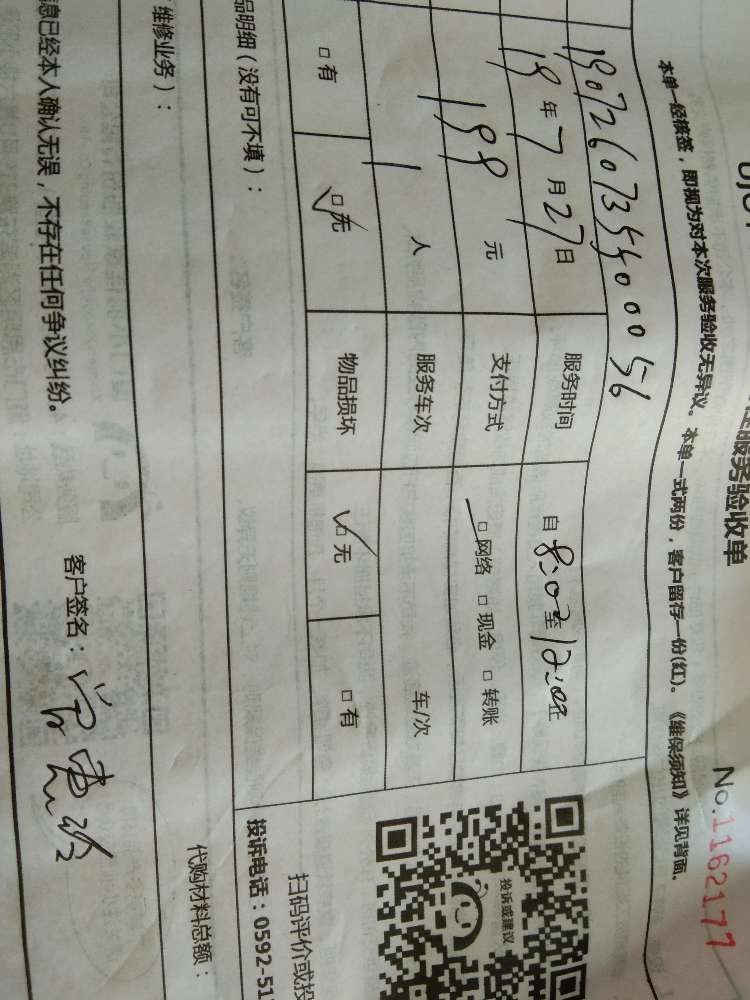 服务验收单
No.1162177
本单一经核签，即视为对本次服务验收无异议。本单一式两份，客户留存一份(红)。《维保须知》详见背面。
19年7月27日 服务时间 自8:00至12:00
199元 支付方式 □网络 □现金 □转账
1人 服务车次 车/次
□有 □无 物品损坏 □无 □有
品明细（没有可不填）：
投诉或建议
扫码评价或投
投诉电话：0592-51
维修业务）：
代购材料总额：
息已经本人确认无误，不存在任何争议纠纷。
客户签名：